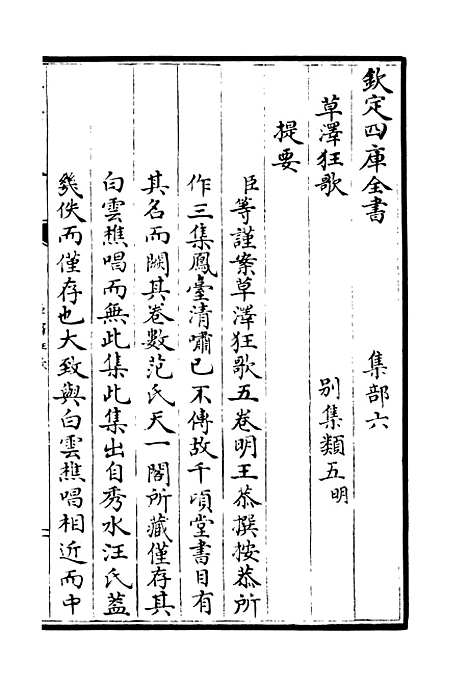 欽定四庫全書　集部六
草澤狂歌　別集類五明
提要
臣等謹案草澤狂歌五卷明王恭撰按恭所
作三集鳳臺清嘯已不傳故千頃堂書目有
其名而闕其卷數范氏天一閣所藏僅存其
白雲樵唱而無此集此集出自秀水汪氏蓋
幾佚而僅存也大致與白雲樵唱相近而中